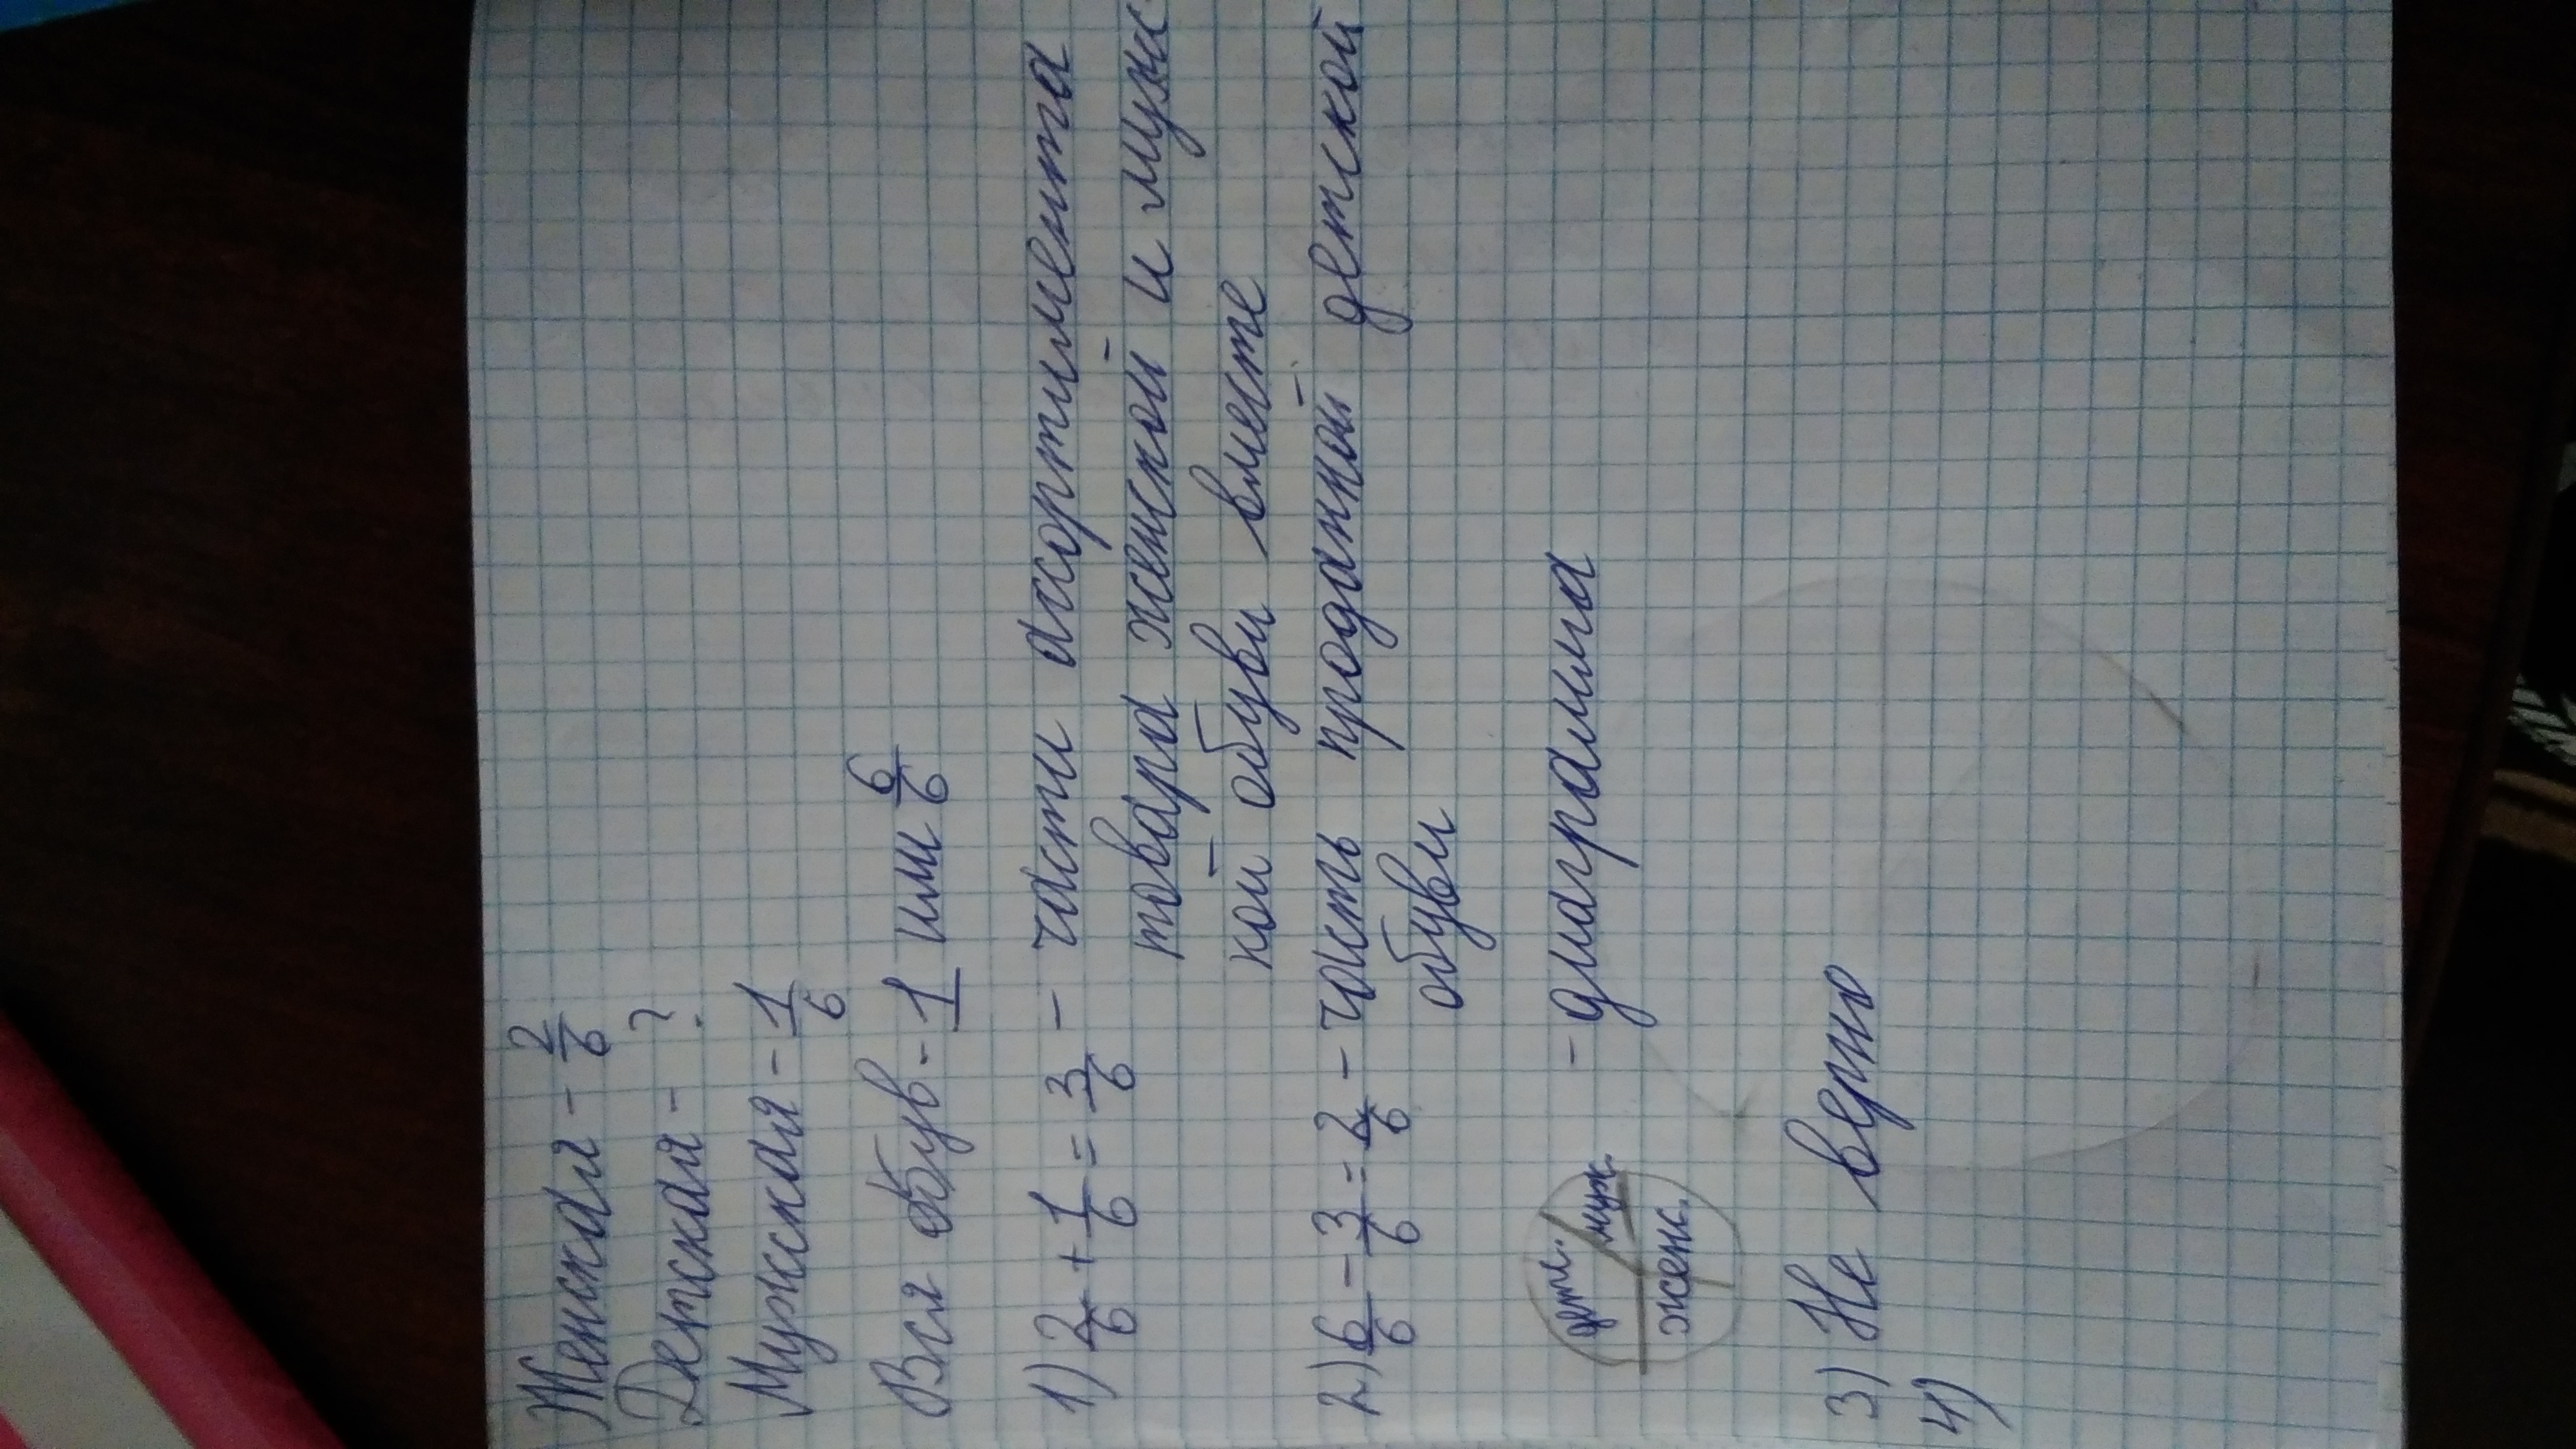 Женская - 2/6
Детская - ?
Мужская - 1/6
Вся обувь - 1 или 6/6
1) 2/6 + 1/6 = 3/6 - части ассортимента
товара женской и мужс
кой обуви вместе
2) 6/6 - 3/6 = 2/6 - часть проданной детской
обуви
дет. муж. женс. - диаграмма
3) Не верно
4)